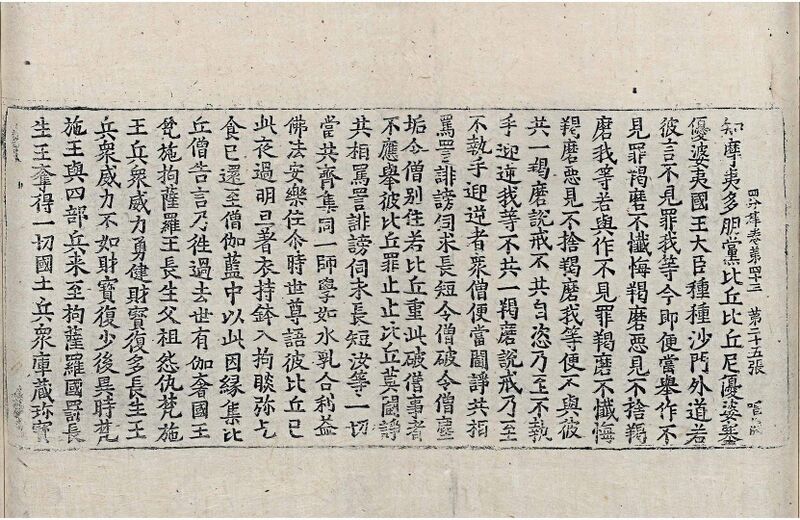 四分律卷第四十三 第二十五張
知摩夷多朋黨比丘比丘尼優婆塞
優婆夷國王大臣種種沙門外道若
彼言不見罪我等今即便當舉作不
見罪羯磨不懺悔羯磨惡見不捨羯
磨我等若與作不見罪羯磨不懺悔
羯磨惡見不捨羯磨我等便不與彼
共一羯磨說戒不共自恣乃至不執
手迎逆我等不共一羯磨說戒乃至
不執手迎逆者眾僧便當鬪諍共相
罵詈誹謗伺求長短令僧破令僧塵
垢令僧別住若比丘重此破僧事者
不應舉彼比丘罪止止比丘莫鬪諍
共相罵詈誹謗伺求長短汝等一切
當共齊集同一師學如水乳合利益
佛法安樂住尒時世尊語彼比丘已
此夜過明旦著衣持鉢入拘睒弥乞
食已還至僧伽藍中以此因緣集比
丘僧告言乃徃過去世有伽奢國王
梵施拘薩羅王長生父祖怨仇梵施
王兵眾威力勇健財寶復多長生王
兵眾威力不如財寶復少後異時梵
施王與四部兵来至拘薩羅國罰長
生王奪得一切國土兵眾庫藏珎寶